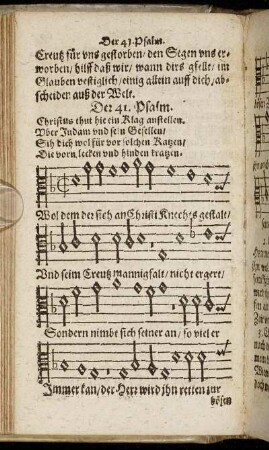 Der 41 Psalm.
Creutz für vns gestorben / den Segen vns er-
worben / hilff daß wir / wann dirs gfelt / im
Glauben vestiglich / einig allein auff dich / ab-
scheiden auß der Welt.
Der 41. Psalm.
Christus thut hie ein Klag anstellen.
Vber Judam vnd sein Gesellen /
Sih dich wol für vor solchen Katzen /
Die vorn lecken vnd hinden kratzen.
Wol dem der sich an Christi Knechts gestalt /
Vnd seim Creutz mannigfalt / nicht ergert /
Sondern nimbt sich seiner an / so viel er
Immer kan / der Herr wird ihn retten zur
bösen